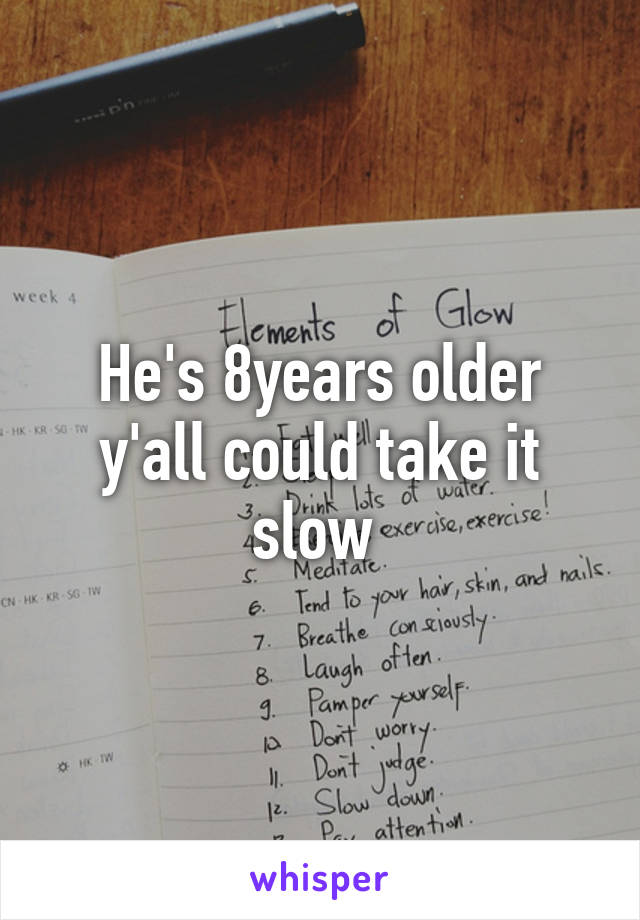 week 4
Elements of Glow
He's 8years older
HK · KR · SG · TW
y'all could take it
2.
3. Drink lots of water.
slow
4. exercise, exercise!
5. Meditate.
CN · HK · KR · SG · TW
6. Tend to your hair, skin, and nails.
7. Breathe consciously.
8. Laugh often.
9. Pamper yourself.
10 Don't worry.
HK · TW
11. Don't judge.
12. Slow down.
Pay attention.
whisper